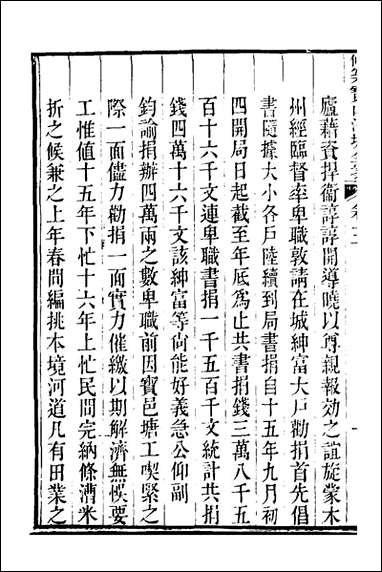 廬藉資捍衞諄諄開導曉以尊親報効之誼旋蒙本
州經臨督率卑職敦請在城紳富大戶勸捐首先倡
書隨據大小各戶陸續到局書捐自十五年九月初
四開局日起截至年底爲止共書捐錢三萬八千五
百十六千文連卑職書捐一千五百千文統計共捐
錢四萬十六千文該紳富等尚能好義急公仰副
鈞諭捐辦四萬兩之數卑職前因寶邑塘工喫緊之
際一面儘力勸捐一面實力催繳以期解濟無悞要
工惟值十五年下忙十六年上忙民間完納條漕米
折之候兼之上年春間編挑本境河道凡有田業之